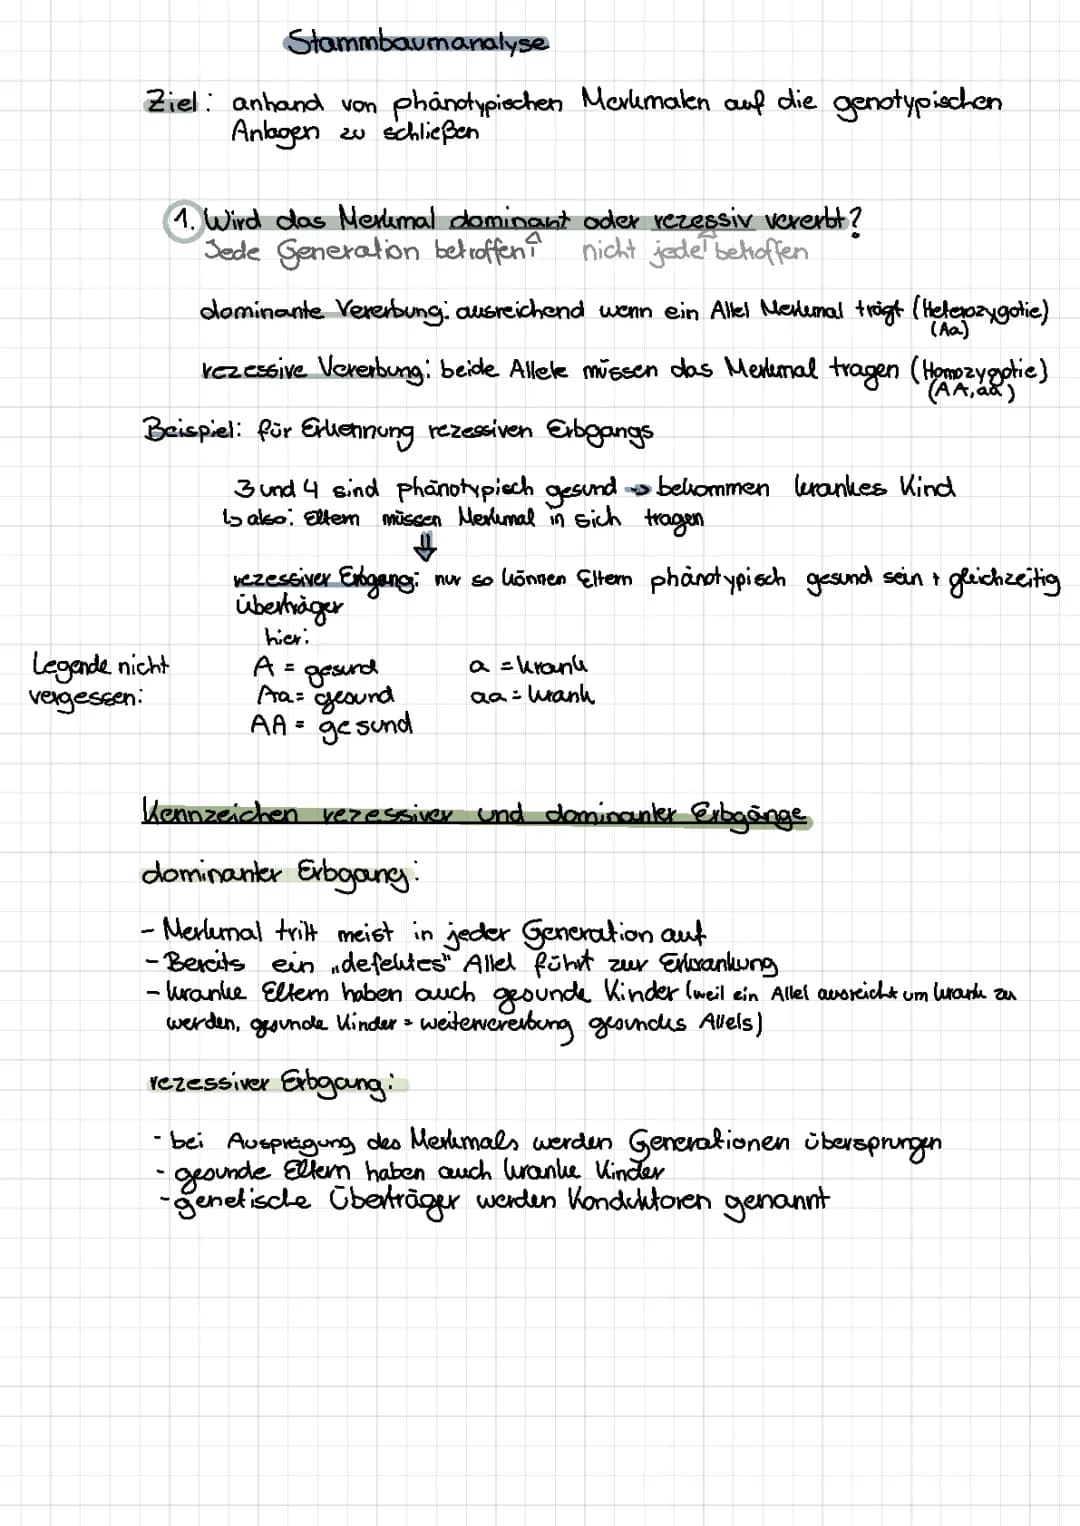 Stammbaumanalyse
Ziel: anhand von phänotypischen Merkmalen auf die genotypischen
Anlagen zu schließen
1. Wird das Merkmal dominant oder rezessiv vererbt?
Jede Generation betroffen nicht jede betroffen
dominante Vererbung: ausreichend wenn ein Allel Merkmal trägt (Heterozygotie)
(Aa)
rezessive Vererbung: beide Allele müssen das Merkmal tragen (Homozygotie)
(AA, aa)
Beispiel: für Erkennung rezessiven Erbgangs
3 und 4 sind phänotypisch gesund → bekommen krankes Kind
↳ also: Eltern müssen Merkmal in sich tragen
⇓
rezessiver Erbgang: nur so können Eltern phänotypisch gesund sein + gleichzeitig
überträger
hier:
Legende nicht A = gesund a = krank
vergessen: Aa = gesund aa = krank
AA = gesund
Kennzeichen rezessiver und dominanter Erbgänge
dominanter Erbgang:
- Merkmal tritt meist in jeder Generation auf
- Bereits ein „defektes" Allel führt zur Erkrankung
- kranke Eltern haben auch gesunde Kinder (weil ein Allel ausreicht um krank zu
werden, gesunde Kinder = weitervererbung gesundes Allels)
rezessiver Erbgang:
- bei Ausprägung des Merkmals werden Generationen übersprungen
- gesunde Eltern haben auch kranke Kinder
- genetische Überträger werden Konduktoren genannt